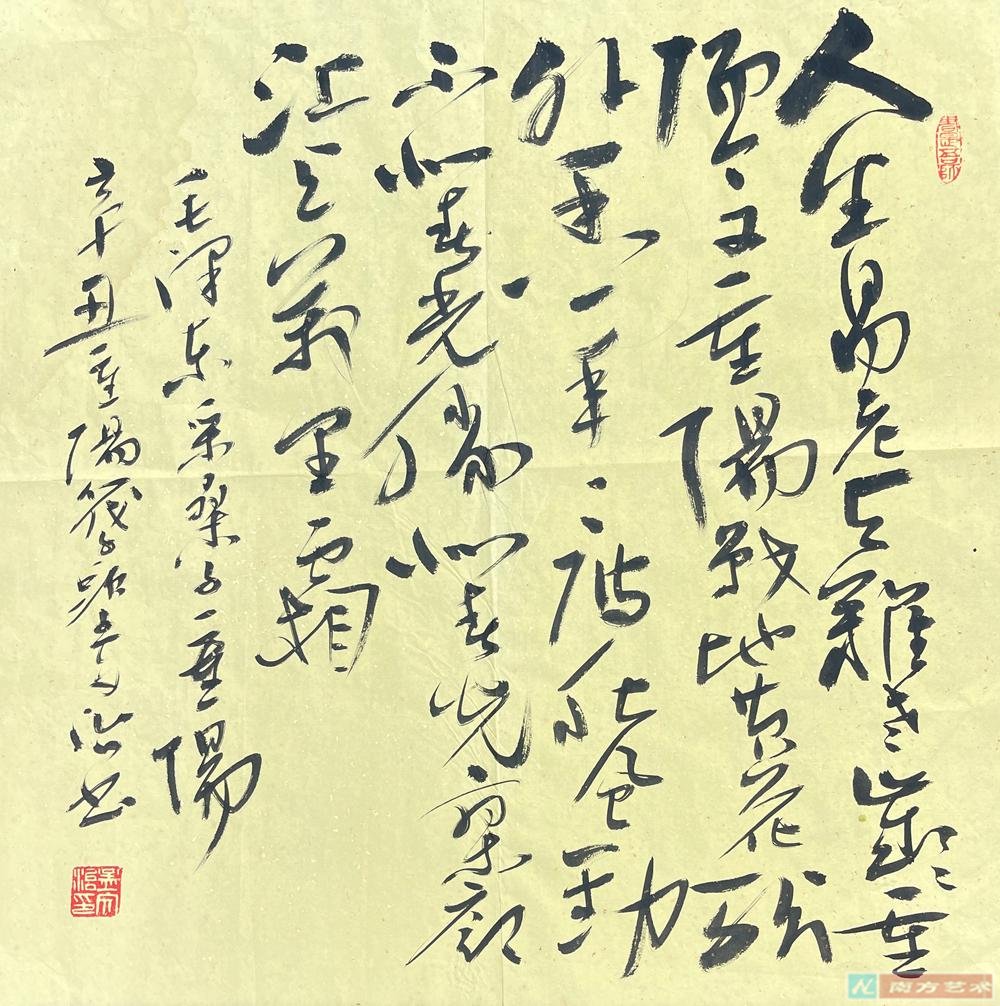 人生易老天難老歲〻重
陽今又重陽戰地黃花分
外香一年一度秋風勁
不似春光勝似春光寥廓
江天萬里霜
毛澤東采桑子重陽
辛丑重陽筏子治书
南方艺术